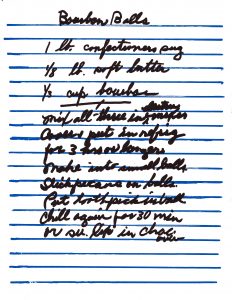 Bourbon Balls
1 lb. confectioners sug
1/8 lb. soft butter
1/3 cup bourbon
mix all three ingre
Cover & put in refrig
for 3 hrs or longer
Make into small balls
Stick pecans on balls.
Put toothpick in ball
Chill again for 30 min
or so. dip in choc
over